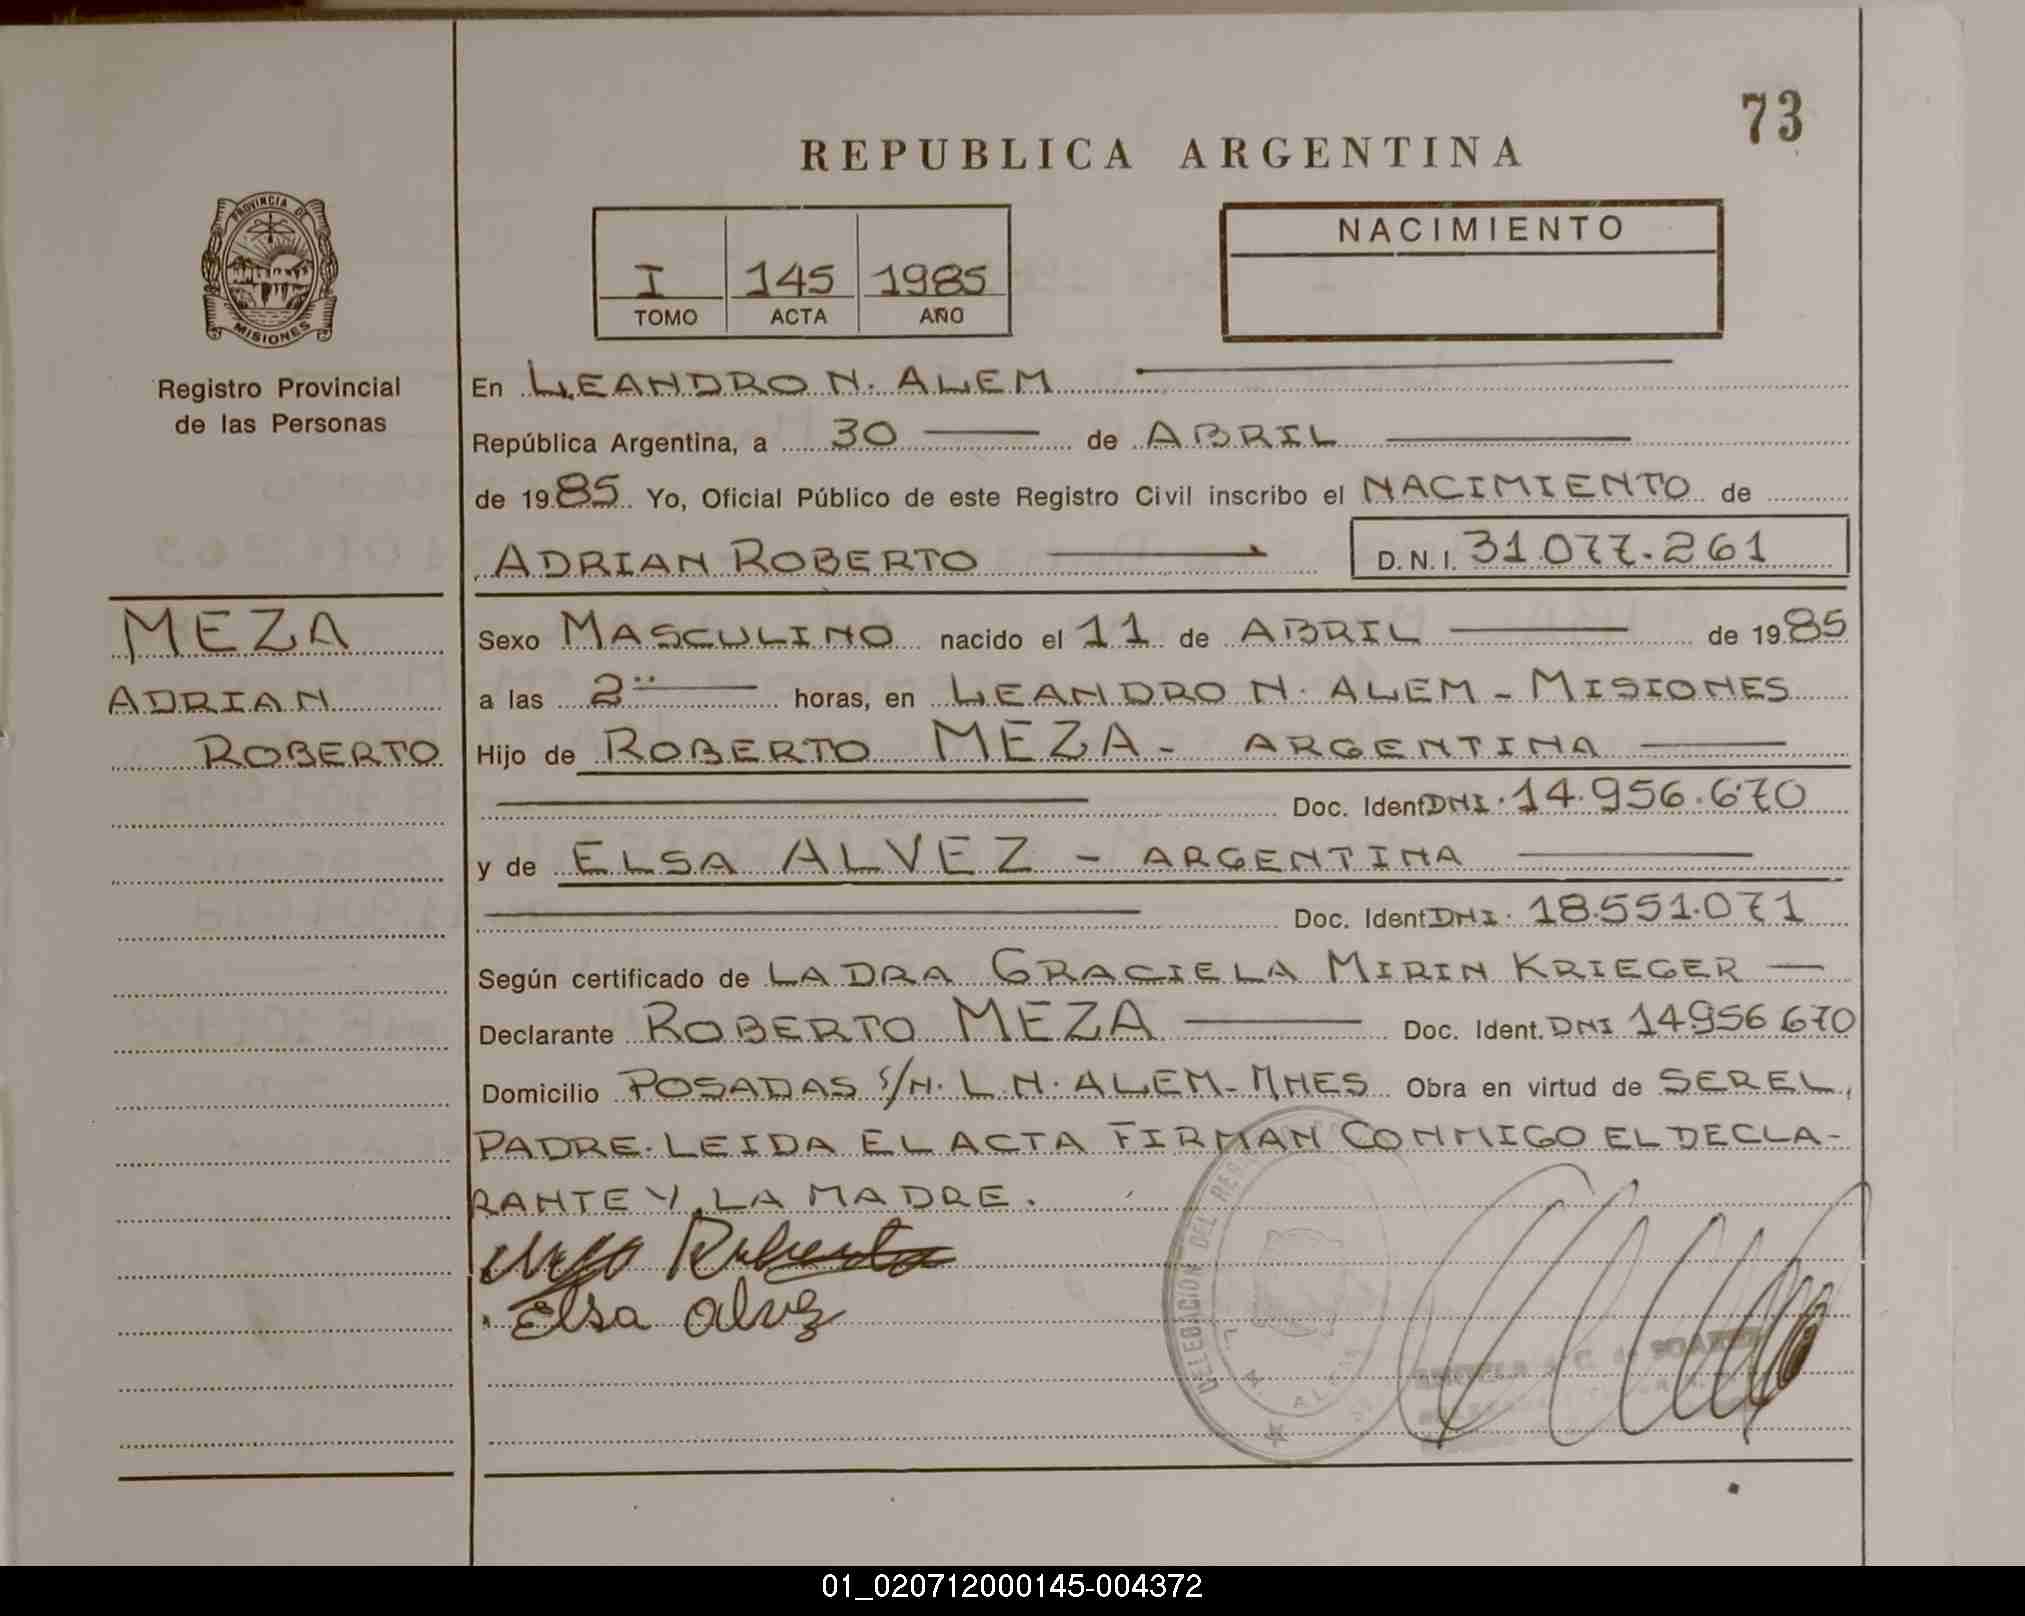 73
REPUBLICA ARGENTINA
PROVINCIA DE
MISIONES
Registro Provincial
de las Personas
I 145 1985
TOMO ACTA AÑO
NACIMIENTO
En LEANDRO N. ALEM
República Argentina, a 30 de ABRIL
de 1985 Yo, Oficial Público de este Registro Civil inscribo el NACIMIENTO de
ADRIAN ROBERTO D.N.I. 31.077.261
MEZA
ADRIAN
ROBERTO
Sexo MASCULINO nacido el 11 de ABRIL de 1985
a las 2 horas, en LEANDRO N. ALEM - MISIONES
Hijo de ROBERTO MEZA - ARGENTINA
Doc. Ident DNI. 14.956.670
y de ELSA ALVEZ - ARGENTINA
Doc. Ident DNI. 18.551.071
Según certificado de LA DRA GRACIELA MIRIN KRIEGER
Declarante ROBERTO MEZA Doc. Ident. DNI 14956670
Domicilio POSADAS S/N. L.N. ALEM - MNES Obra en virtud de SER EL
PADRE. LEIDA EL ACTA FIRMAN CONMIGO EL DECLA-
RANTE Y LA MADRE.
Roberto
Elsa Alvez
DELEGACION DEL
L. N. ALEM
01_020712000145-004372